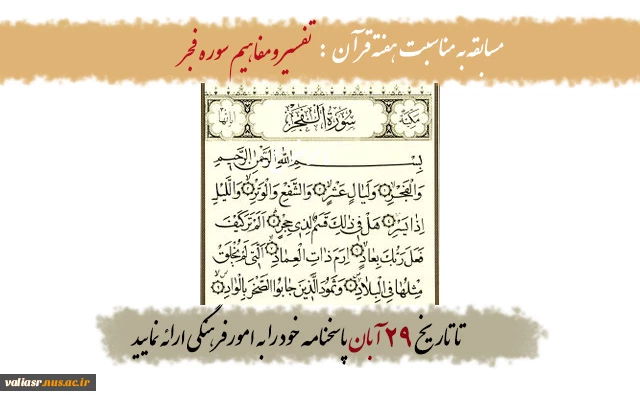 مسابقه به مناسبت هفته قرآن : تفسیر و مفاهیم سوره فجر
مكية سُورَةُ الْفَجْرِ آیاتها
بِسْمِ اللَّهِ الرَّحْمَنِ الرَّحِيمِ
وَالْفَجْرِ وَلَيَالٍ عَشْرٍ وَالشَّفْعِ وَالْوَتْرِ وَاللَّيْلِ
إِذَا يَسْرِ هَلْ فِي ذَلِكَ قَسَمٌ لِذِي حِجْرٍ أَلَمْ تَرَ كَيْفَ
فَعَلَ رَبُّكَ بِعَادٍ إِرَمَ ذَاتِ الْعِمَادِ الَّتِي لَمْ يُخْلَقْ
مِثْلُهَا فِي الْبِلَادِ وَثَمُودَ الَّذِينَ جَابُوا الصَّخْرَ بِالْوَادِ
تا تاریخ ۲۹ آبان پاسخنامه خود را به امور فرهنگی ارائه نمایید
valiasr.nus.ac.ir